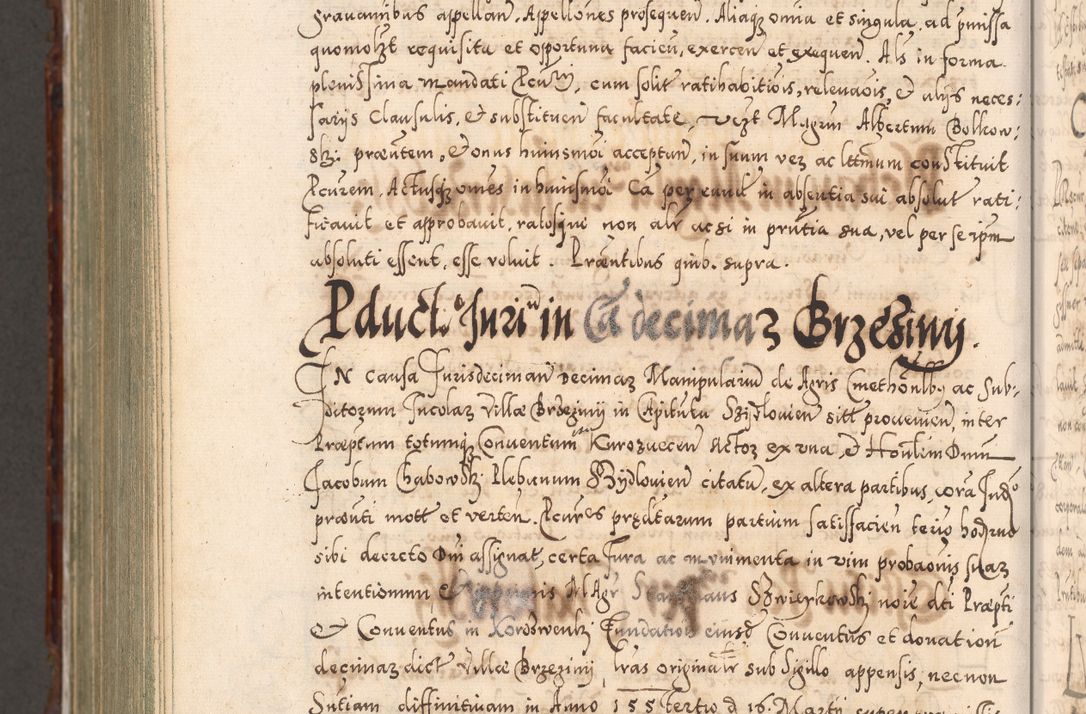 gravaminibus appellan. Appellones prosequen. Aliaqz omia et singula, ad pmissa
quomolzt requisita et opportuna facien, exercen et exequen. Als in forma
plenissima mandati Pcurij, cum solit ratihabitiois, relevaois, & alijs neces:
sarijs Clausulis, & substituen facultate, vezt Magrm Albertum Bolkow:
ski præntem, & onus huiusmoi acceptan, in suum ver ac lttmum constituit
Pcurem. Actusqz omes in huiusmoi Ca per eund in absentia sui absolut rati:
ficavit et approbavit, ratosque non alr acsi in prntia sua, vel per se ipm
absoluti essent, esse voluit. Præntibus quib. supra.
Pduct. Juriu in Ca decimaz Brzesiny.
IN causa Jurisdeciman decimaz Manipulariu de Agris Cmethonlbq ac Sub-
ditorum Incolaz Villæ Brzeziny in Capitutu Szydlovien sitt provenien, inter
Præptum totumqz Conventum Kurozvecen Actoz ex una, & Honlim Dnum
Jacobum Gabowski Plebanum Szydlovien citatu, ex altera partibus, cora Judo
prænti mott et verten. Pcures prædtarum partium satisfacien terio hodruo
sibi decreto Dni assignat, certa Jura ac munimenta in vim probaonis suaz
intentionum, & Magr Stanislaus Szwieykowski noie dti Præpti
& Conventus in Fundation eiusd Conventus et donation
decimaz dict Villæ Brzeziny, lras originalr sub Sigillo appensis, necnon
Sntiam diffinitivam in Anno 155 tertio d 16 Martij